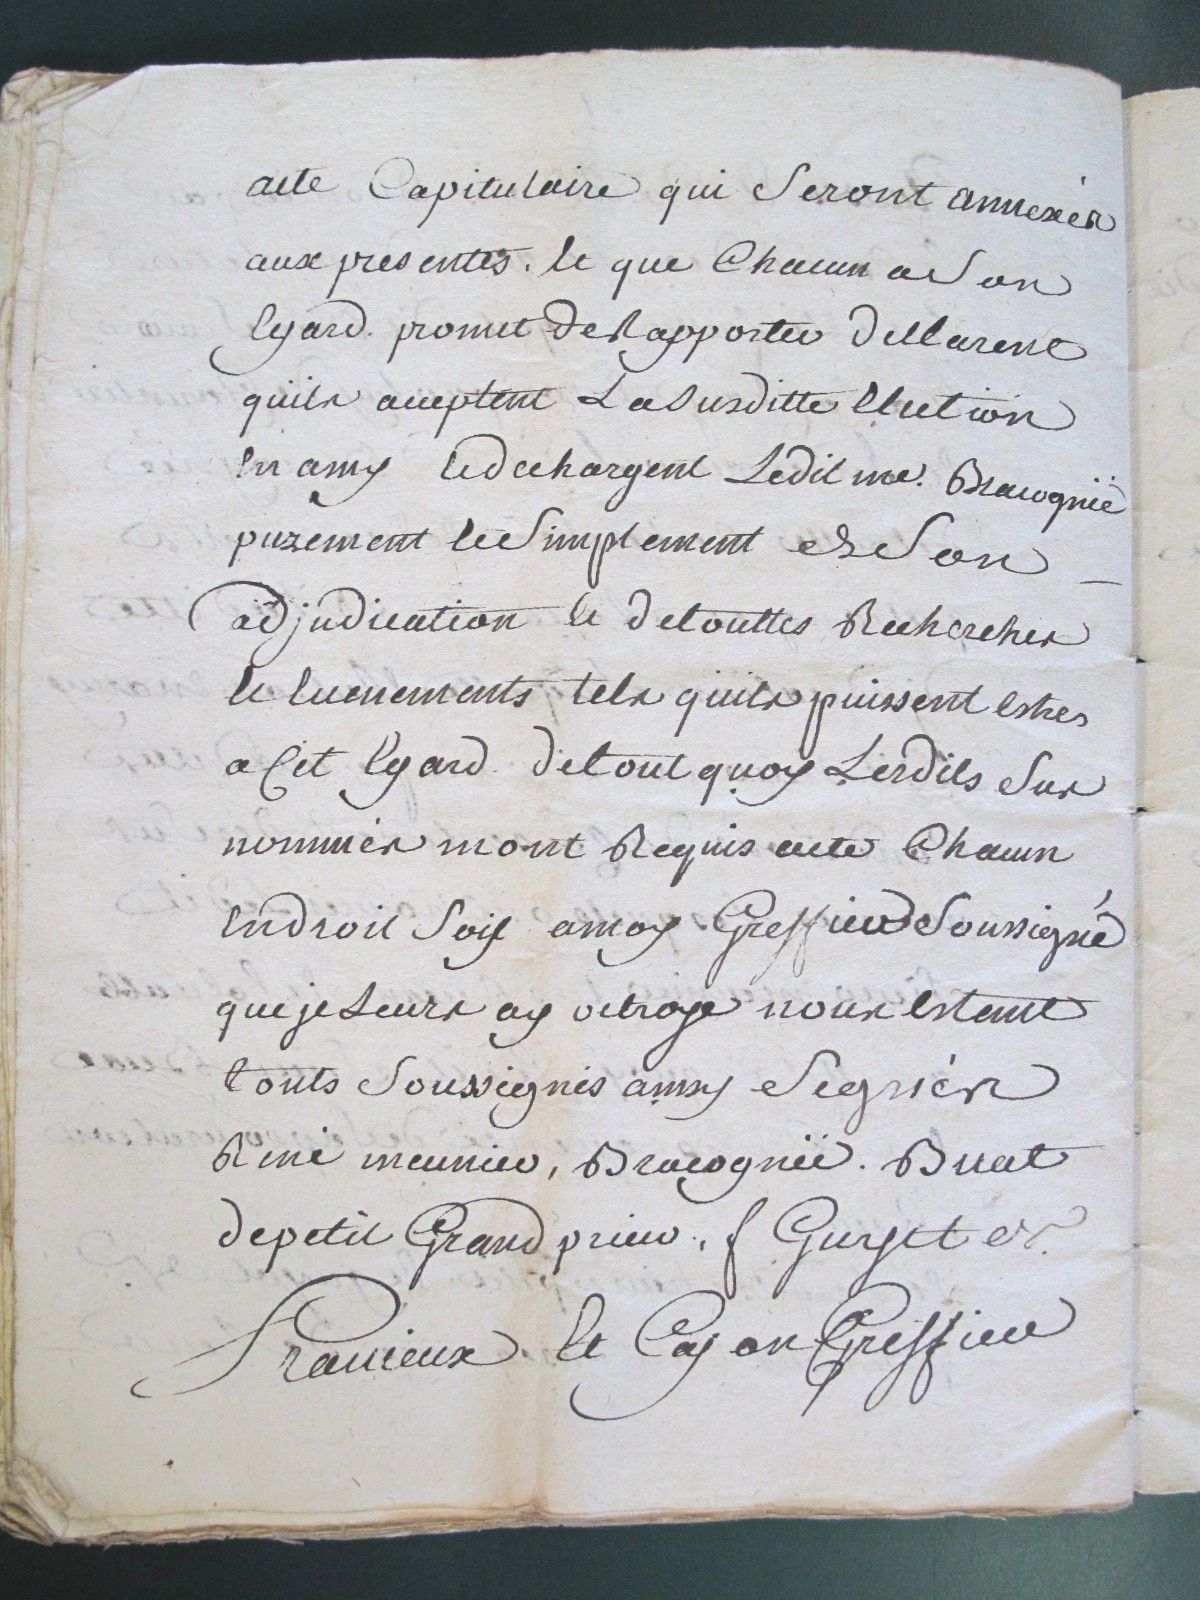 acte Capitulaire qui Seront annexéz
aux presentes. le que Chacun a Son
Egard promet de Rapporter declarent
quils acceptent La Susditte Election
En amy et dechargent Ledit me. Bracognié
purement et Simplement et Son
adjudication et de touttes Recherches
et Evenements tels quils puissent Estres
a Cet Egard de tout quoy Lesdits Sus
nommés mont Requis acte Chacun
Endroit Soit a moy Greffier Soussigné
que je Leurs ay octroyé nous Estant
touts Soussignés amsy Segnés
René meunier, Bracognié. Buat
de petit Grand prieur, f Guyet et
Francieux et Cayon Greffier